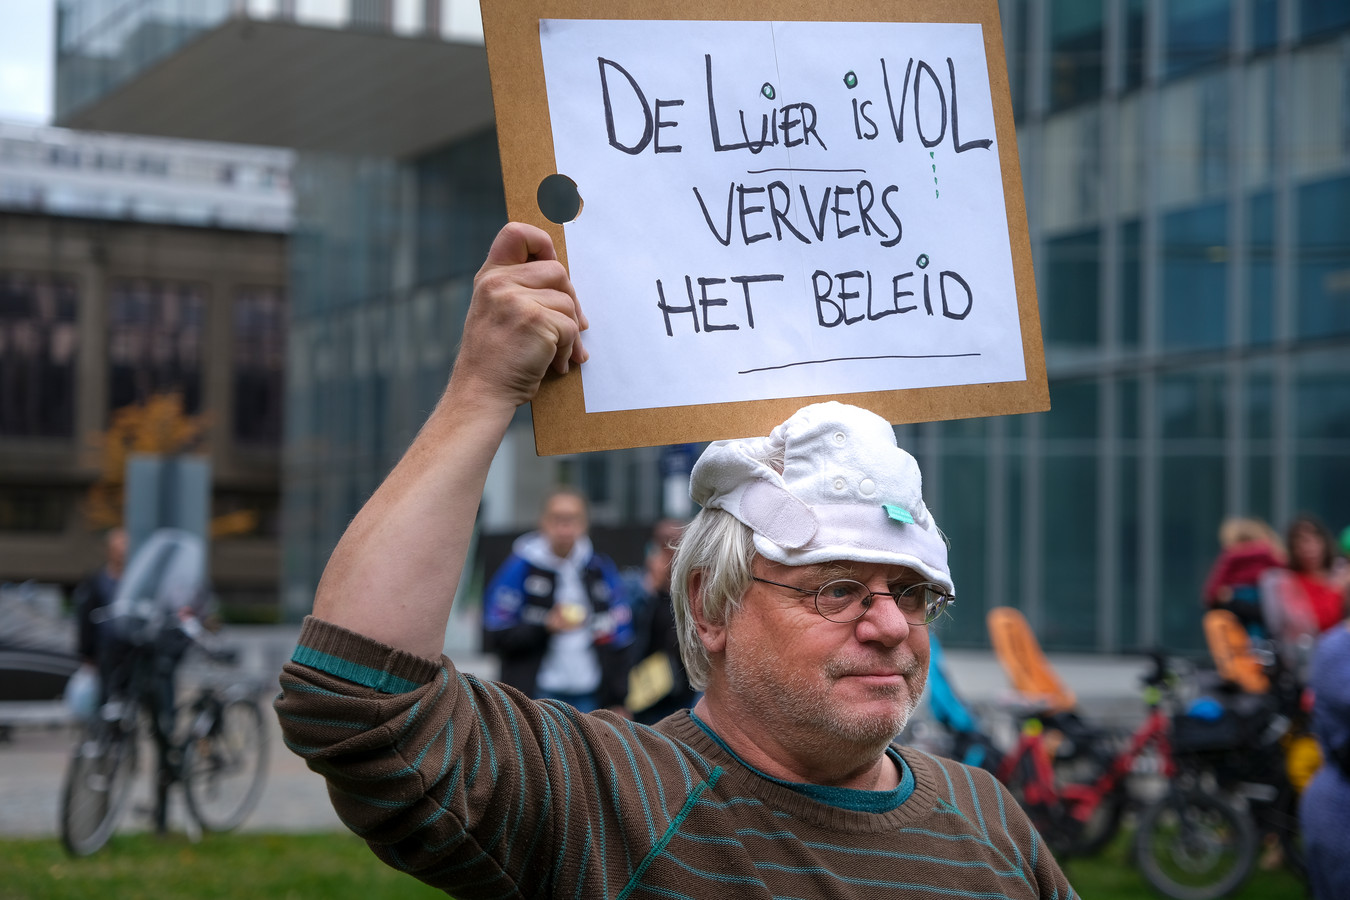 DE LUIER is VOL
VERVERS
HET BELEID